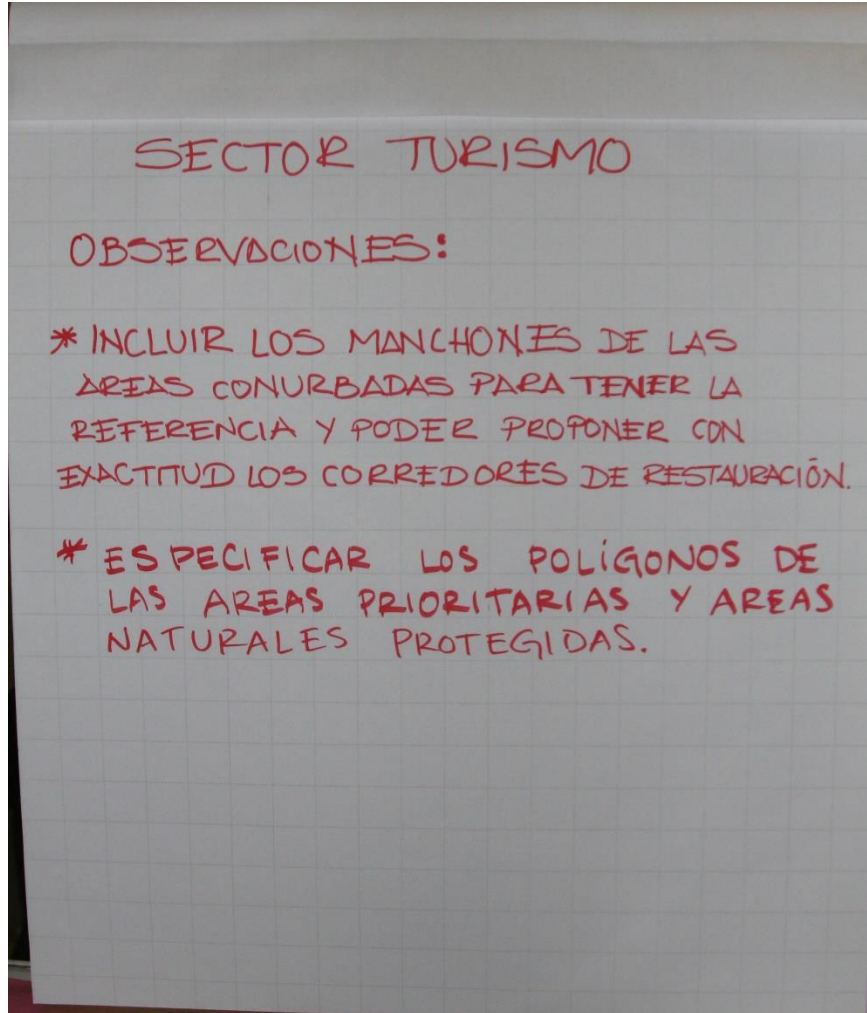 SECTOR TURISMO
OBSERVACIONES:
* INCLUIR LOS MANCHONES DE LAS
AREAS CONURBADAS PARA TENER LA
REFERENCIA Y PODER PROPONER CON
EXACTITUD LOS CORREDORES DE RESTAURACIÓN.
* ESPECIFICAR LOS POLÍGONOS DE
LAS AREAS PRIORITARIAS Y AREAS
NATURALES PROTEGIDAS.